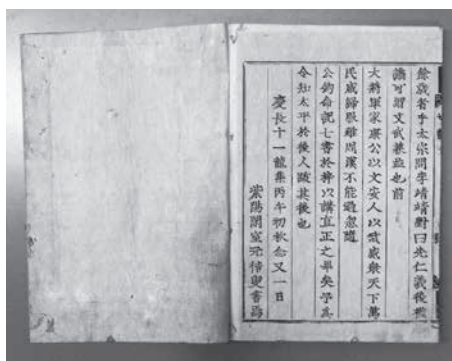 餘歳者乎太宗問李靖靖對曰先仁義後
謂可謂文武兼並也前
大將軍家康公以文安人以武威衆天下萬
民咸歸服雖周漢不能過焉
公鈞命記七書於梓以講宜正之畢矣予爲
令知太平於後人跋其後也
慶長十一龍集丙午初秋念又一日
紫陽閑室元佶叟書焉